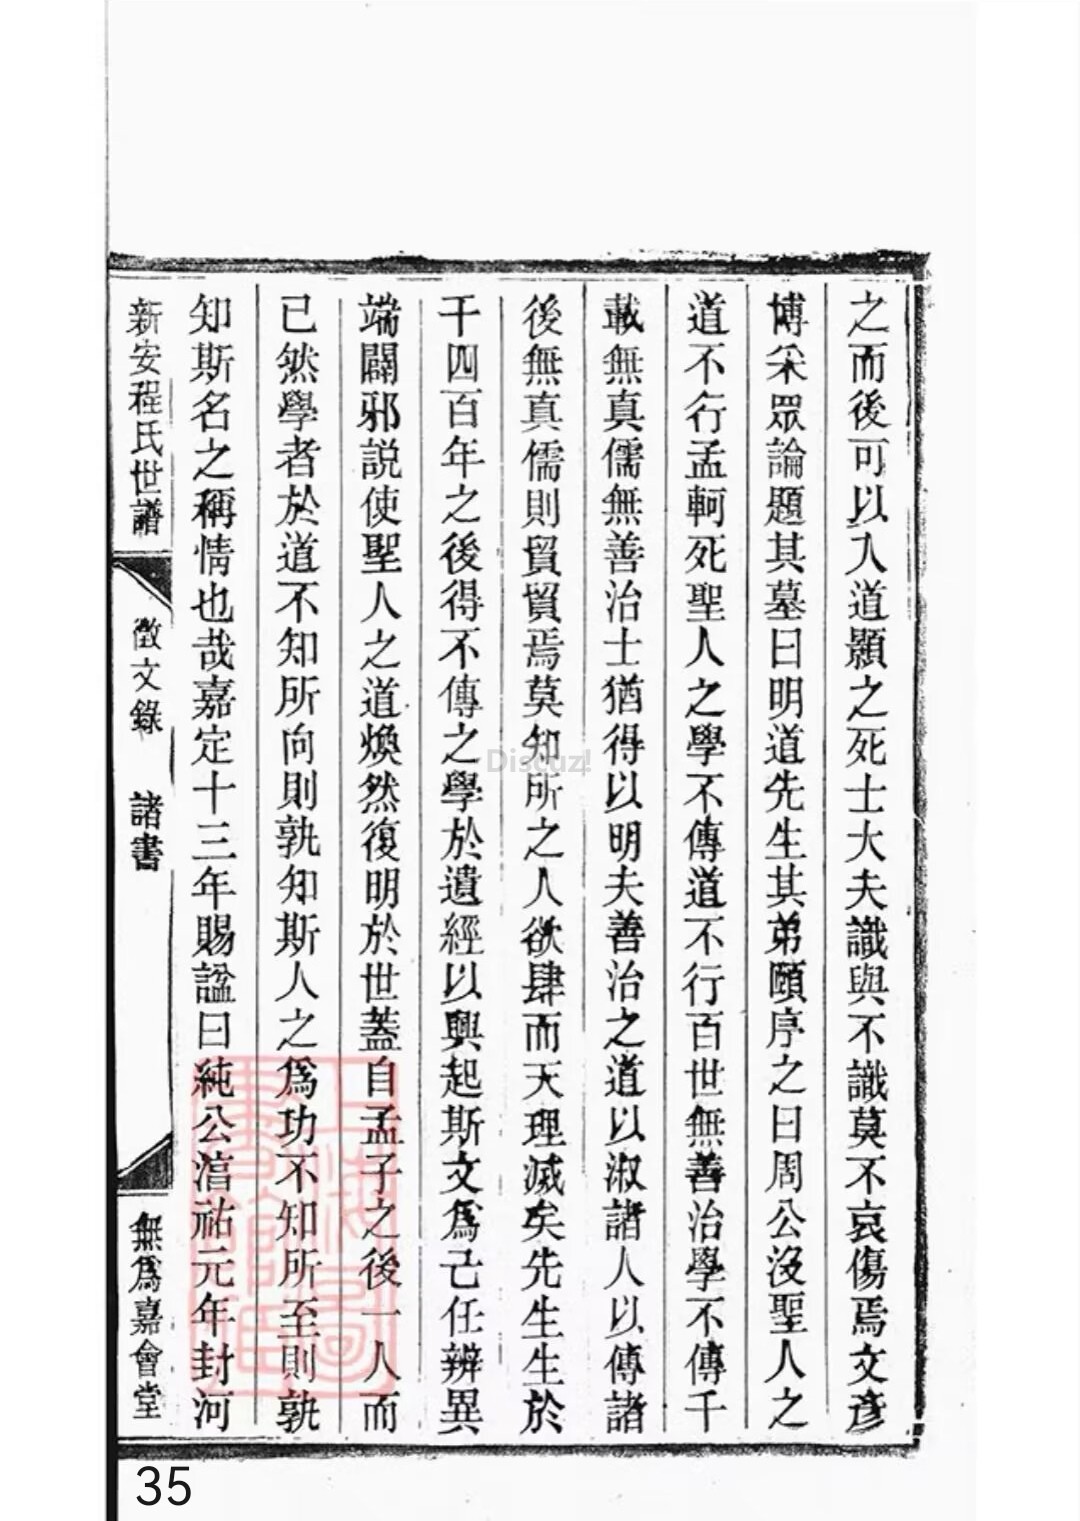 之而後可以入道顥之死士大夫識與不識莫不哀傷焉文彥
博采眾論題其墓曰明道先生其弟頤序之曰周公沒聖人之
道不行孟軻死聖人之學不傳道不行百世無善治學不傳千
載無真儒無善治士猶得以明夫善治之道以淑諸人以傳諸
後無真儒則貿貿焉莫知所之人欲肆而天理滅矣先生生於
千四百年之後得不傳之學於遺經以興起斯文爲己任辨異
端闢邪説使聖人之道煥然復明於世蓋自孟子之後一人而
已然學者於道不知所向則孰知斯人之爲功不知所至則孰
知斯名之稱情也哉嘉定十三年賜諡曰純公淯祐元年封河
新安程氏世譜
徵文錄
諸書
無爲嘉會堂
上海圖書館藏
Discuz!
35